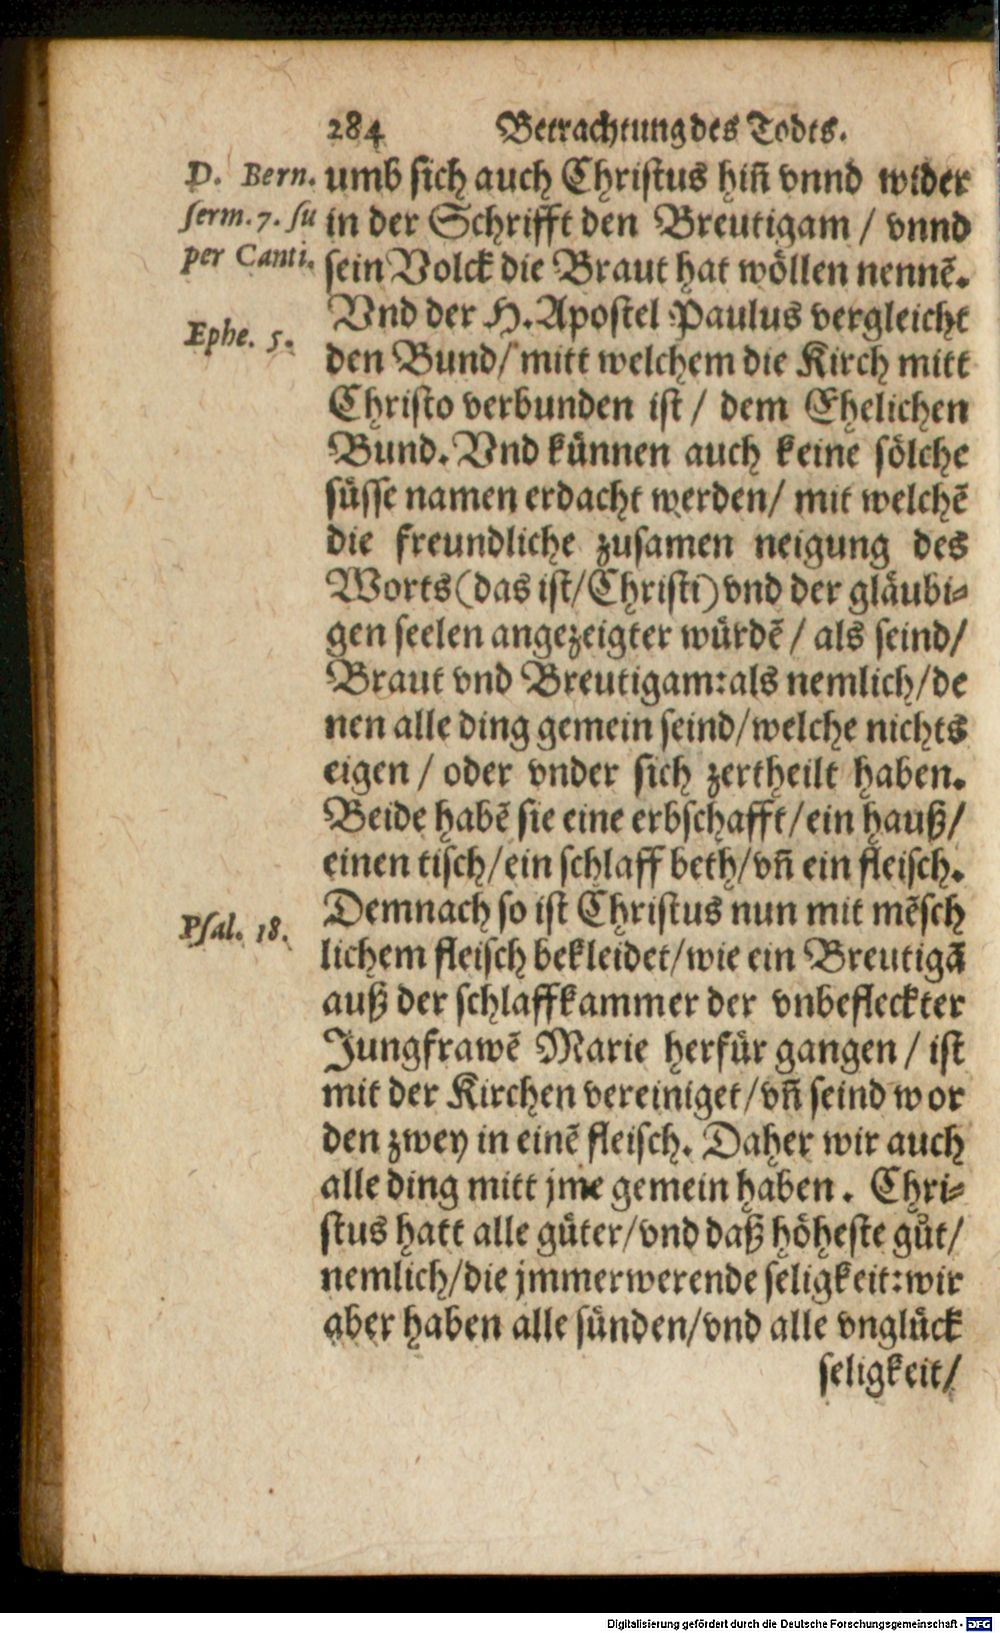 284 Betrachtung des Todts.
D. Bern.
serm. 7. su
per Canti.
Ephe. 5.
Psal. 18.
umb sich auch Christus hiñ vnnd wider
in der Schrifft den Breutigam / vnnd
sein Volck die Braut hat wöllen nennẽ.
Vnd der H. Apostel Paulus vergleicht
den Bund/ mitt welchem die Kirch mitt
Christo verbunden ist / dem Ehelichen
Bund. Vnd künnen auch keine sölche
süsse namen erdacht werden/ mit welchẽ
die freundliche zusamen neigung des
Worts (das ist/ Christi) vnd der gläubi-
gen seelen angezeigter würdẽ / als seind/
Braut vnd Breutigam: als nemlich/ de
nen alle ding gemein seind/ welche nichts
eigen / oder vnder sich zertheilt haben.
Beide habẽ sie eine erbschafft/ ein hauß/
einen tisch/ ein schlaff beth/ vñ ein fleisch.
Demnach so ist Christus nun mit mẽsch
lichem fleisch bekleidet/ wie ein Breutigã
auß der schlaffkammer der vnbefleckter
Jungfrawẽ Marie herfür gangen / ist
mit der Kirchen vereiniget/ vñ seind wor
den zwey in einẽ fleisch. Daher wir auch
alle ding mitt jme gemein haben. Chri-
stus hatt alle güter/ vnd daß höheste gůt/
nemlich/ die jmmerwerende seligkeit: wir
aber haben alle sünden/ vnd alle vnglück
seligkeit/
Digitalisierung gefördert durch die Deutsche Forschungsgemeinschaft - DFG